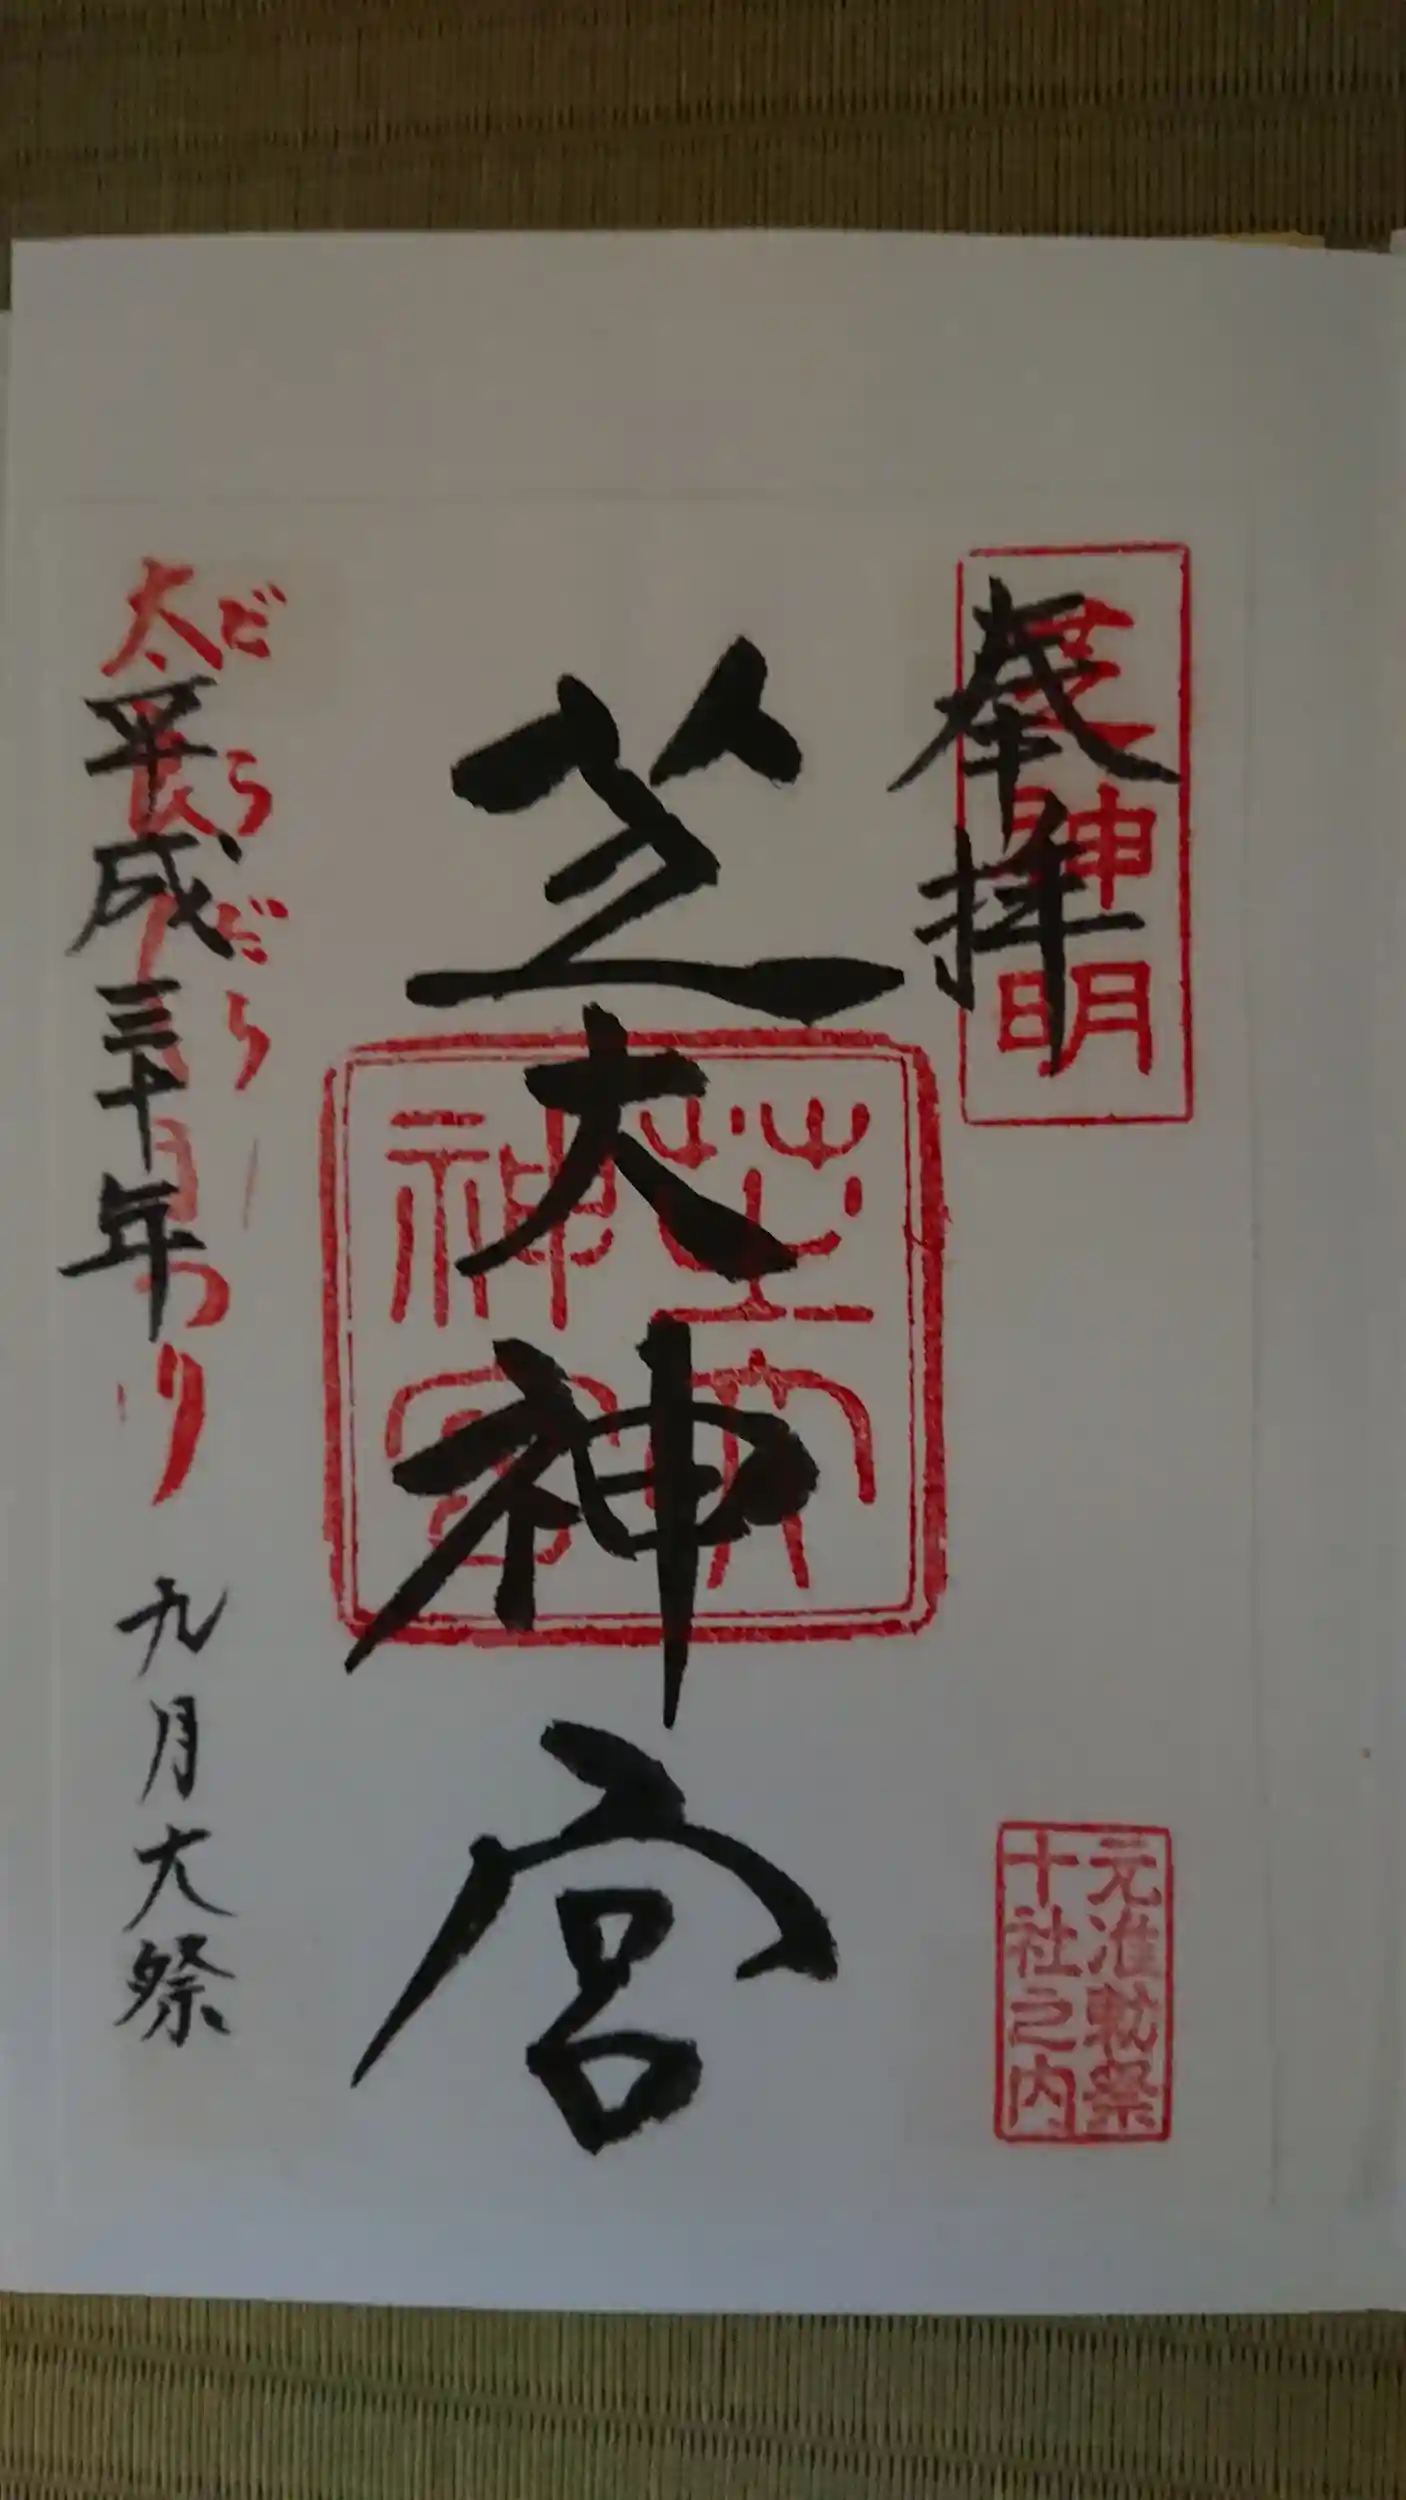 奉拝
芝神明
元准勅祭
十社之内
芝大神宮
芝大
神宮
だらだら
太良
まつり
平成三十年 九月大祭